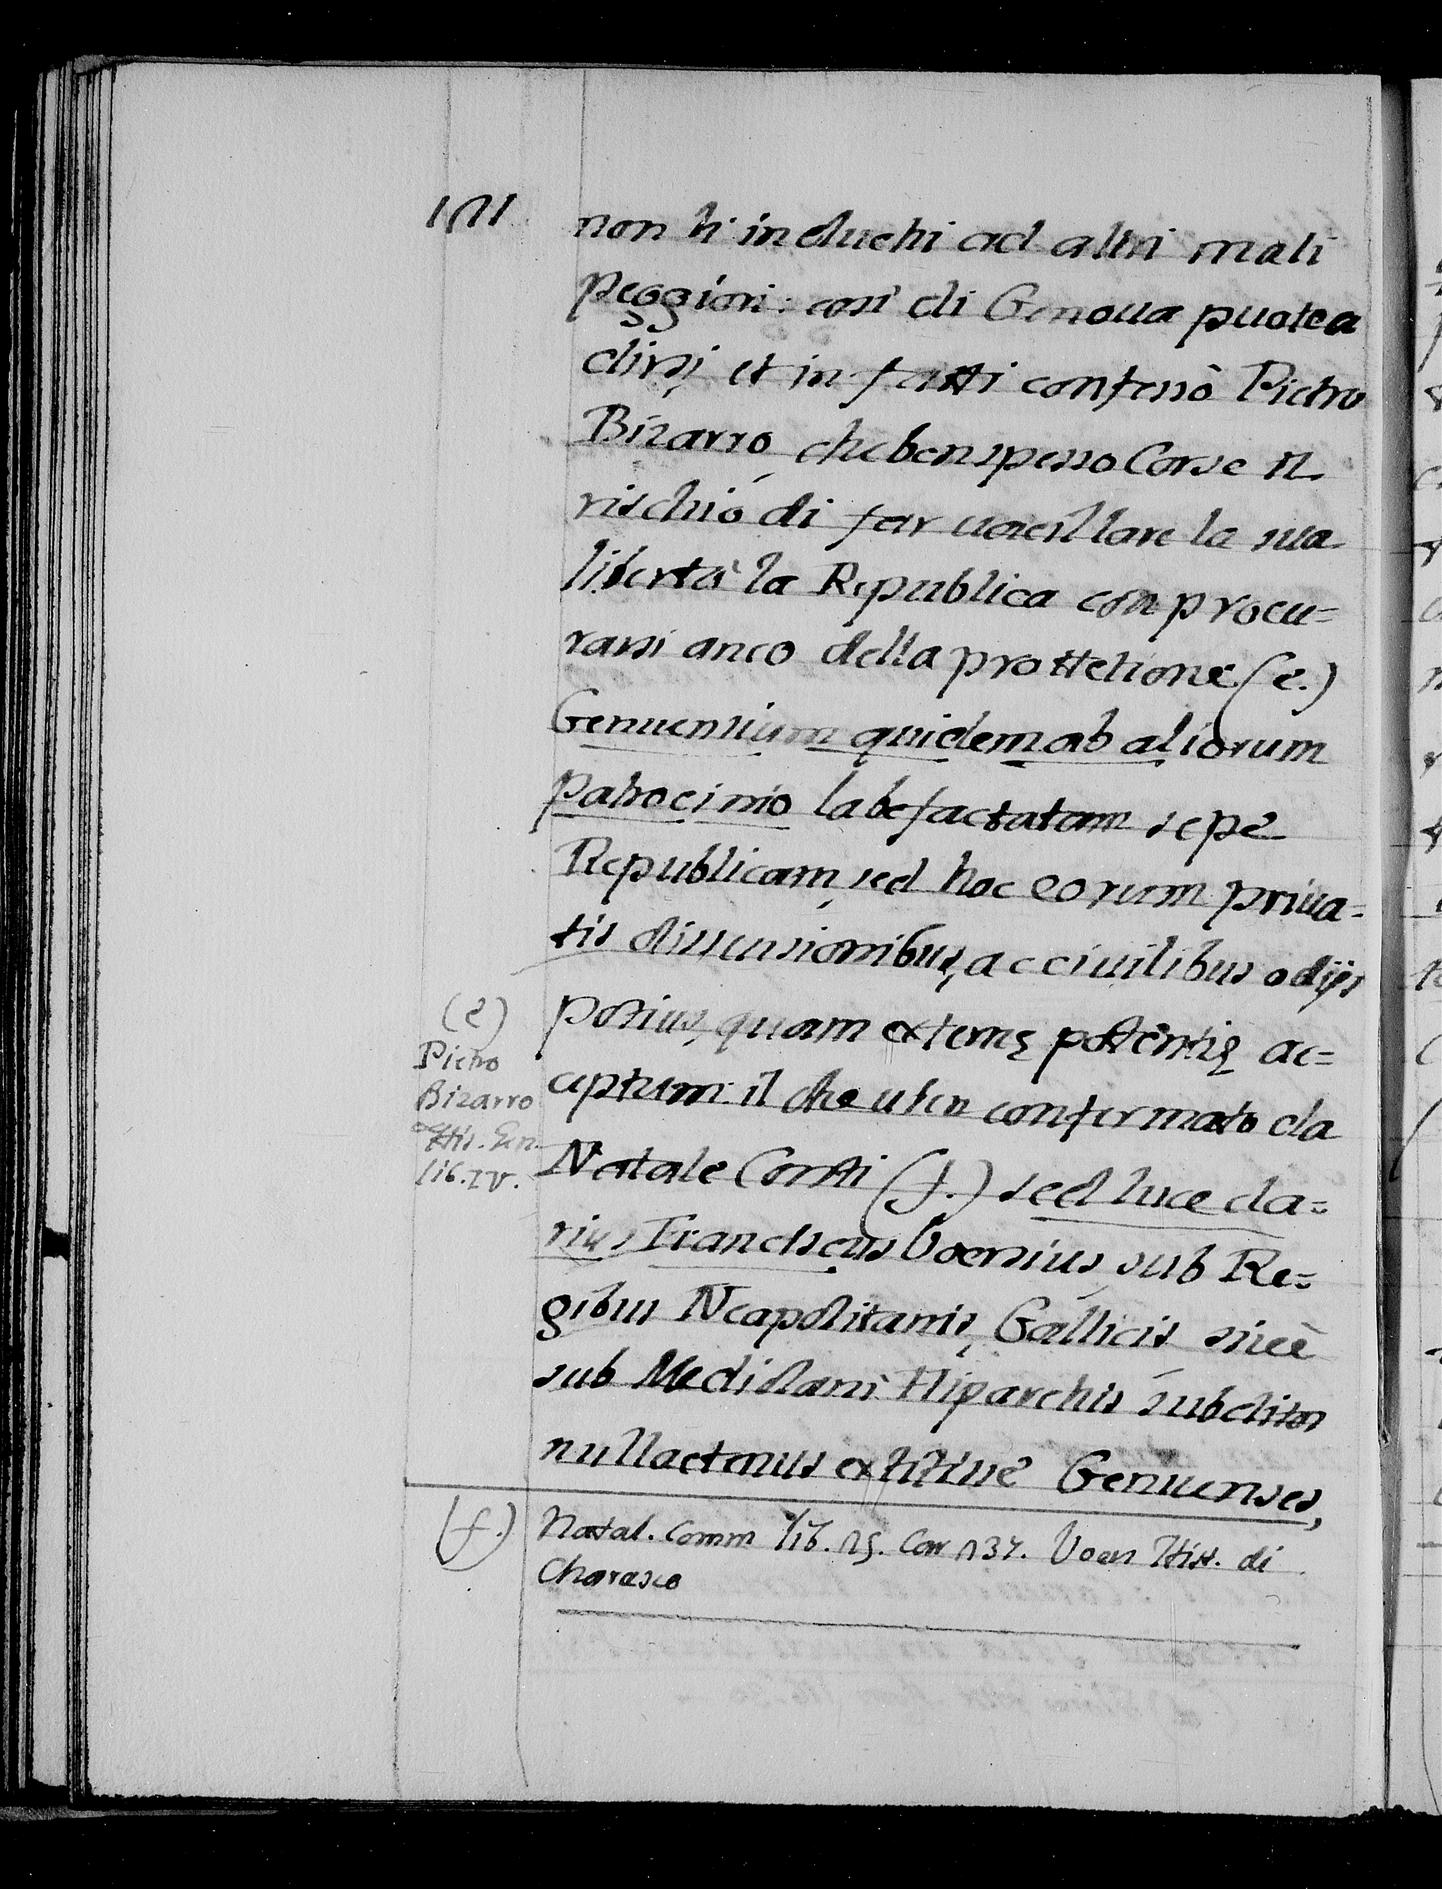 171
non li induchi ad altri mali
peggiori: così di Genoua puotea
dirsi et in fatti confessò Pietro
Bizarro, che ben spesso Corse il
rischio di far uacillare la sua
libertà la Republica con procu=
rarsi anco della prottetione (e.)
Genuensium quidem ab aliorum
patrocinio labefactatam sepe
Republicam, sed hoc eorum priua=
tis dissensionibus, ac ciuilibus odijs
potius, quam externę potentię ac=
ceptum: il che uien confermato da
Natale Conti (f.) sed luce cla=
rius Franciscus Voersius, sub Re=
gibus Neapolitanis, Gallicis siuè
sub Mediolani Hiparchis subditos
nullactenus extitisse Genuenses,
(e)
Pietro
Bizarro
His. Gen.
lib. IV.
(f.) Natal. Comm lib. 15. Car 137. Voers Hist. di
Charasco